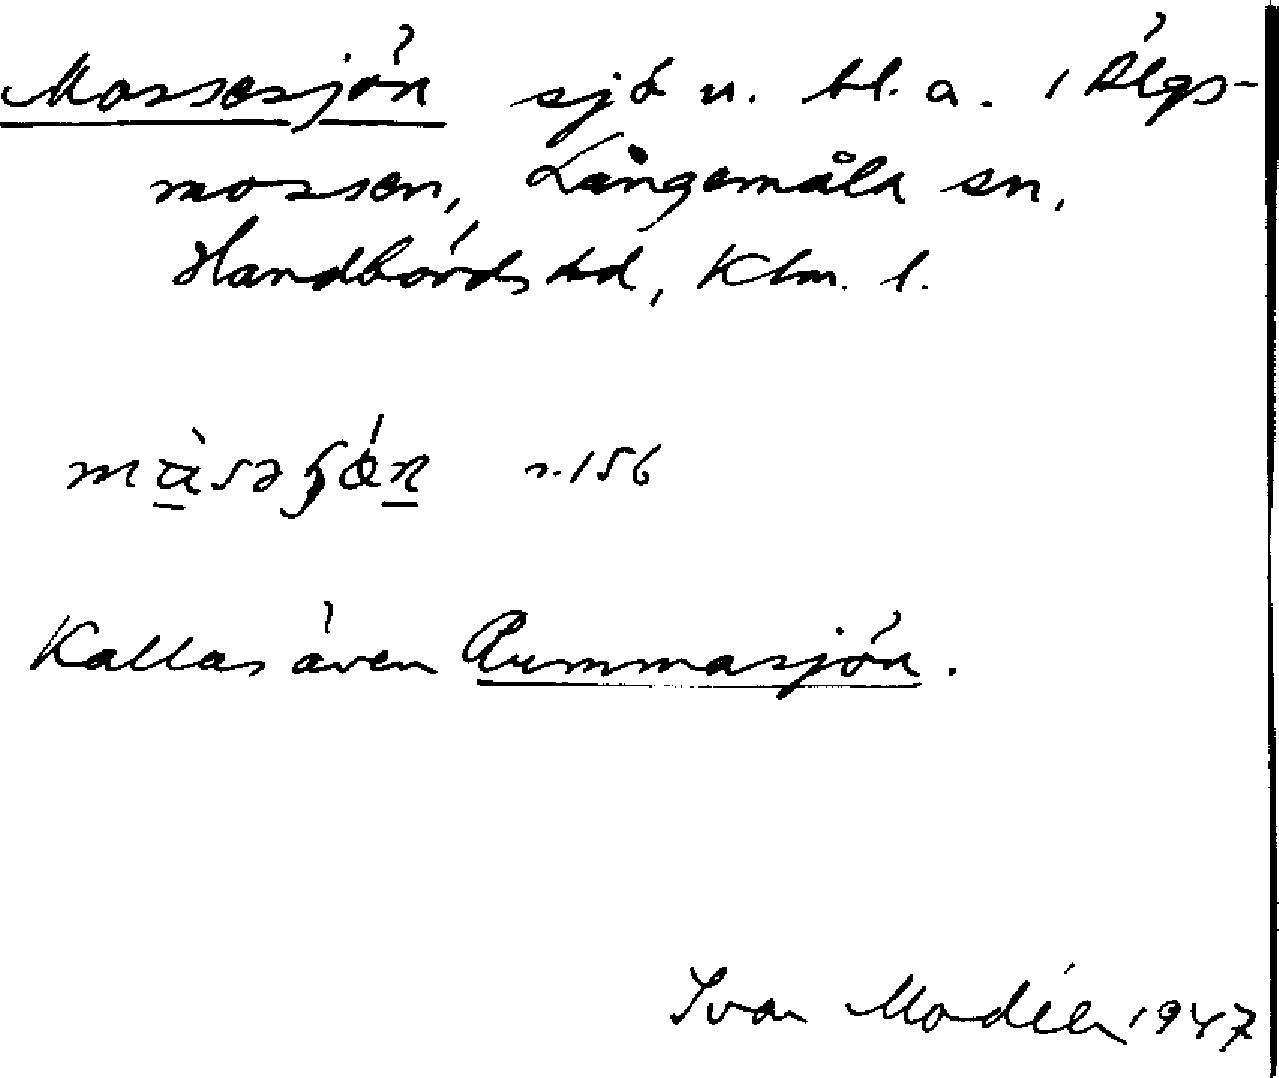 Mossesjön sjö u. bl. a. i Älgs-
mossen, Långemåla sn,
Handbörds hd, Klm. l.
s. 156
Kallas även Rummasjön.
Ivar Modéer 1947